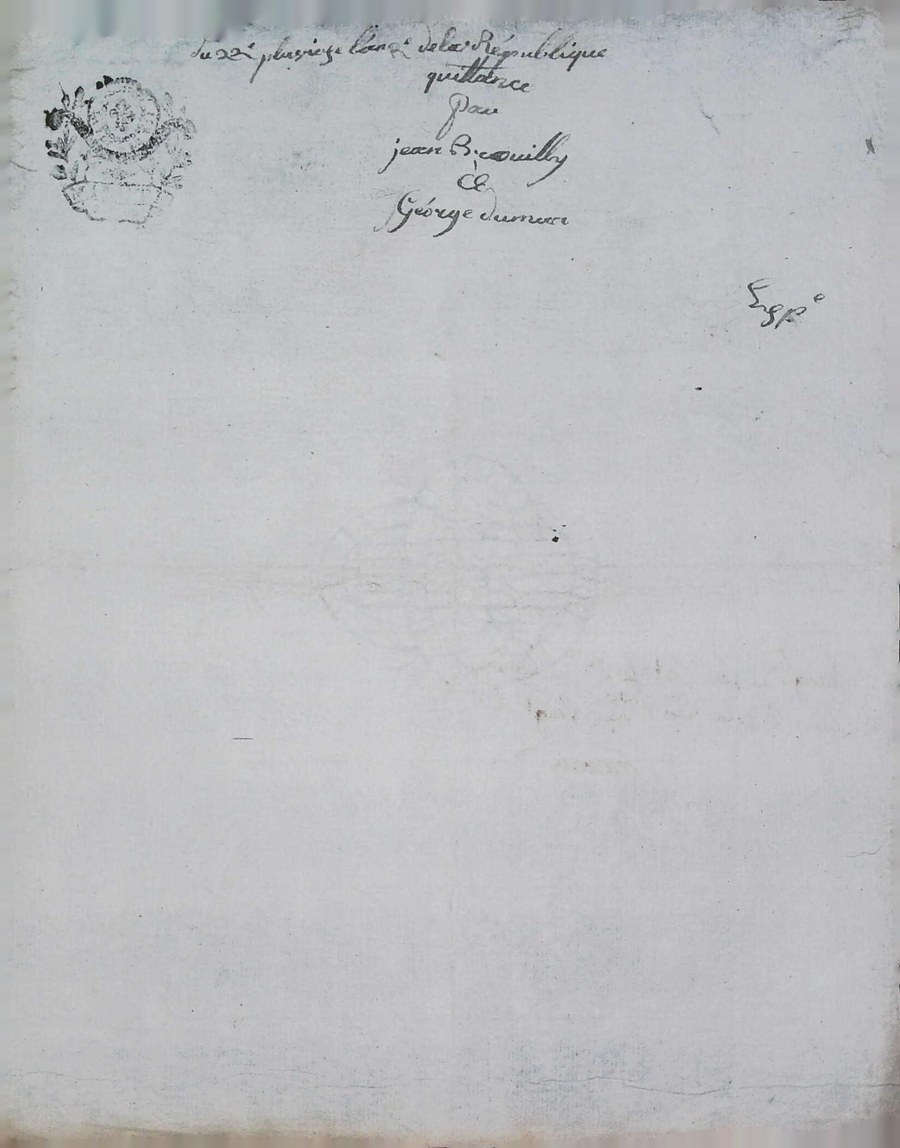 du 22e pluvioze l'an 2e de la République
quittance
par
jean B. couilly
à
George dumur
Expé